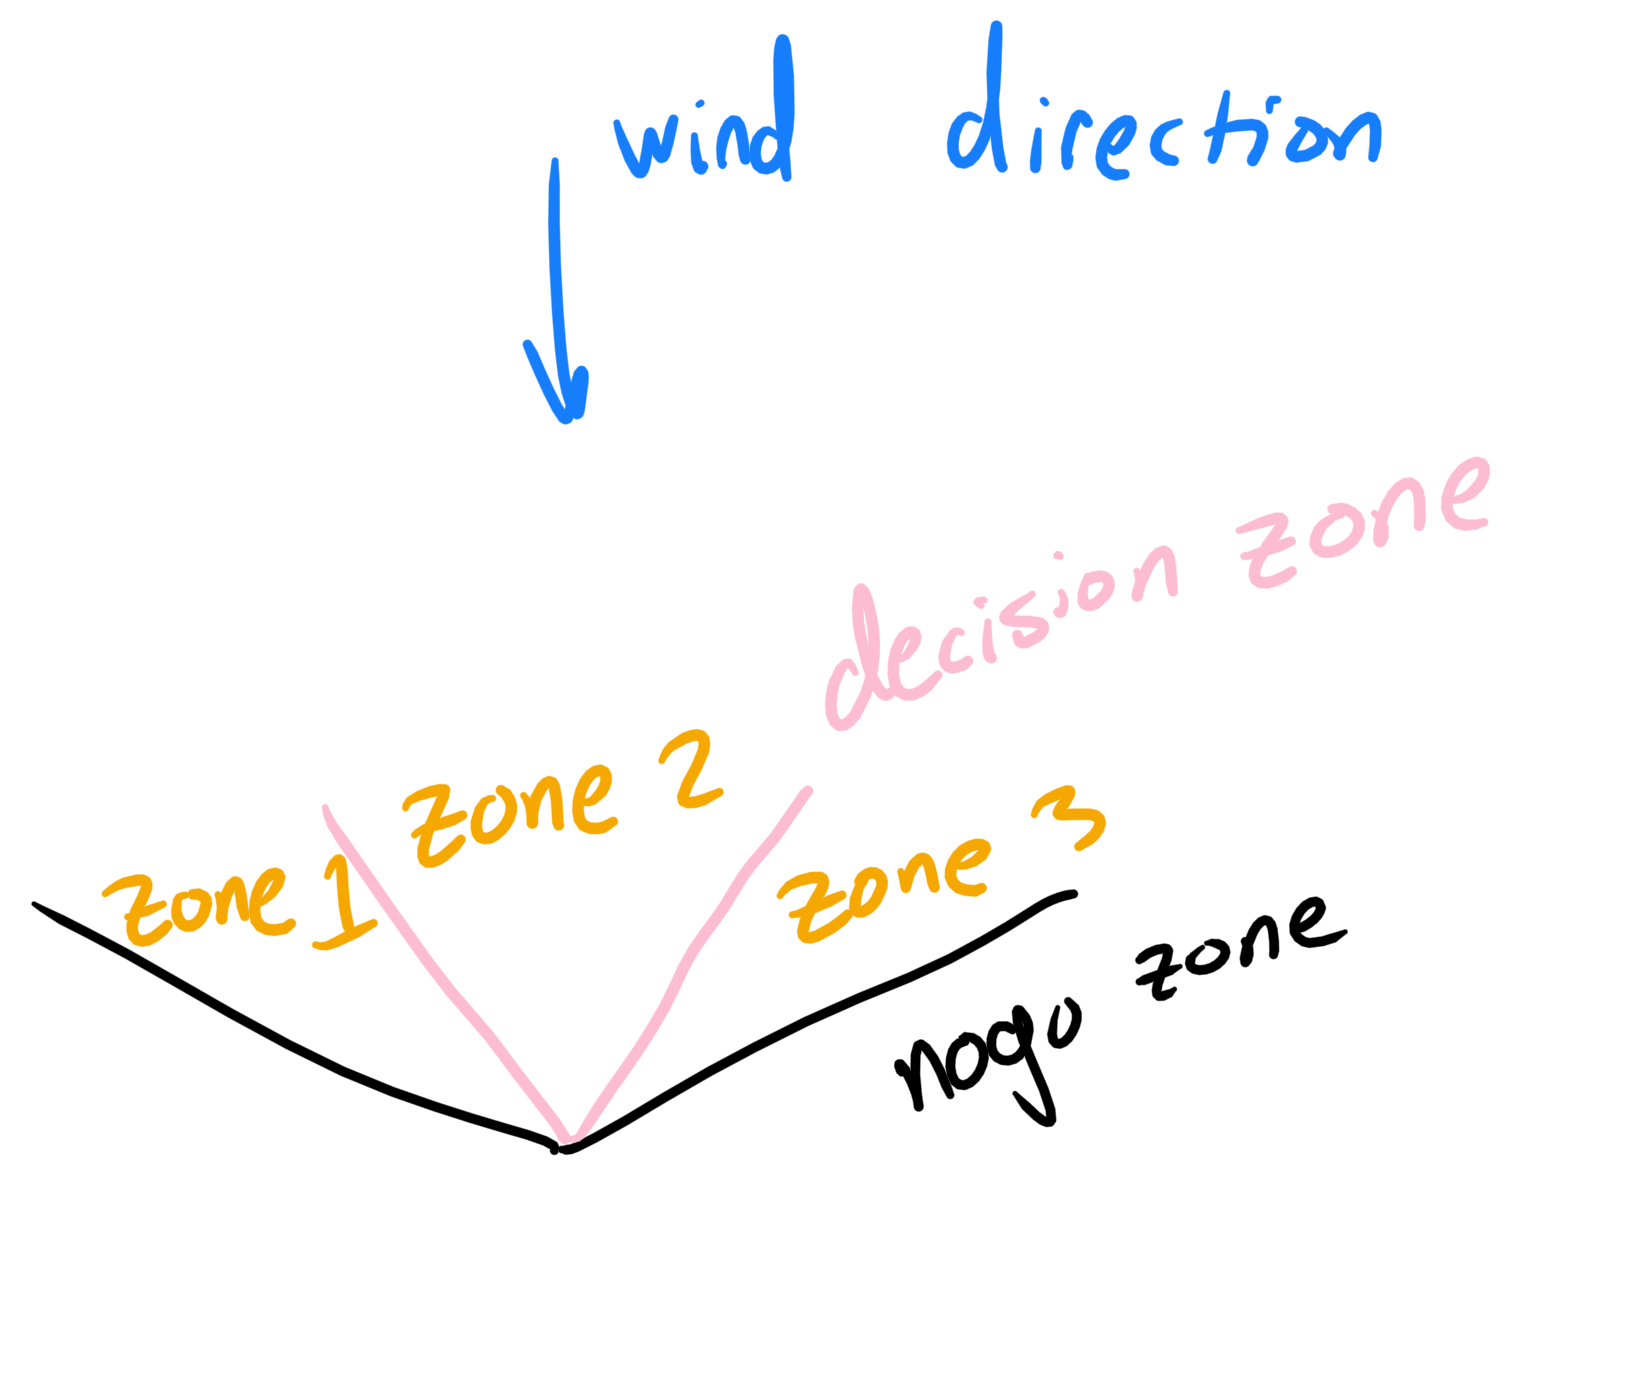 wind direction
decision zone
zone 2
zone 1
zone 3
nogo zone